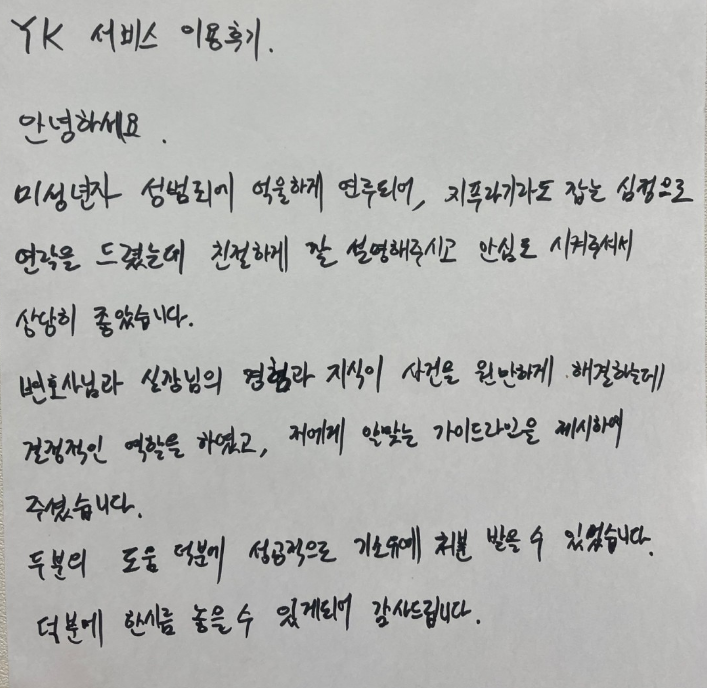 YK 서비스 이용후기.
안녕하세요.
미성년자 성범죄에 억울하게 연루되어, 지푸라기라도 잡는 심정으로
연락을 드렸는데 친절하게 잘 설명해주시고 안심도 시켜주셔서
상당히 좋았습니다.
변호사님과 실장님의 경험과 지식이 사건을 원만하게 해결하는데
결정적인 역할을 하였고, 저에게 알맞는 가이드라인을 제시하여
주셨습니다.
두분의 도움 덕분에 성공적으로 기소유예 처분 받을 수 있었습니다.
덕분에 한시름 놓을 수 있게되어 감사드립니다.